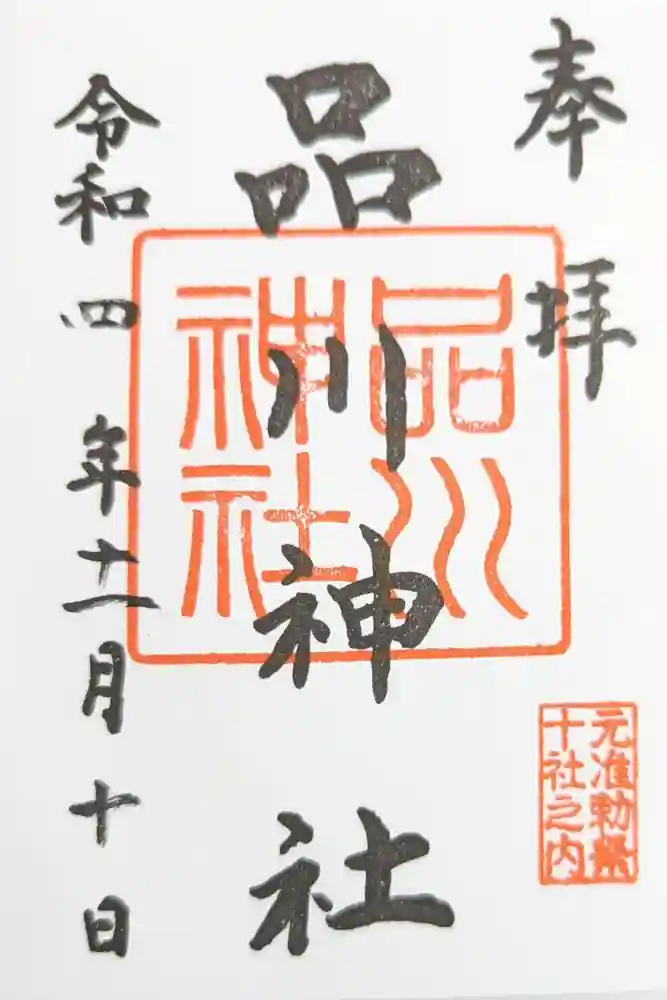 奉拝
品川神社
品川
神社
令和四年十一月十日
元准勅祭
十社之内